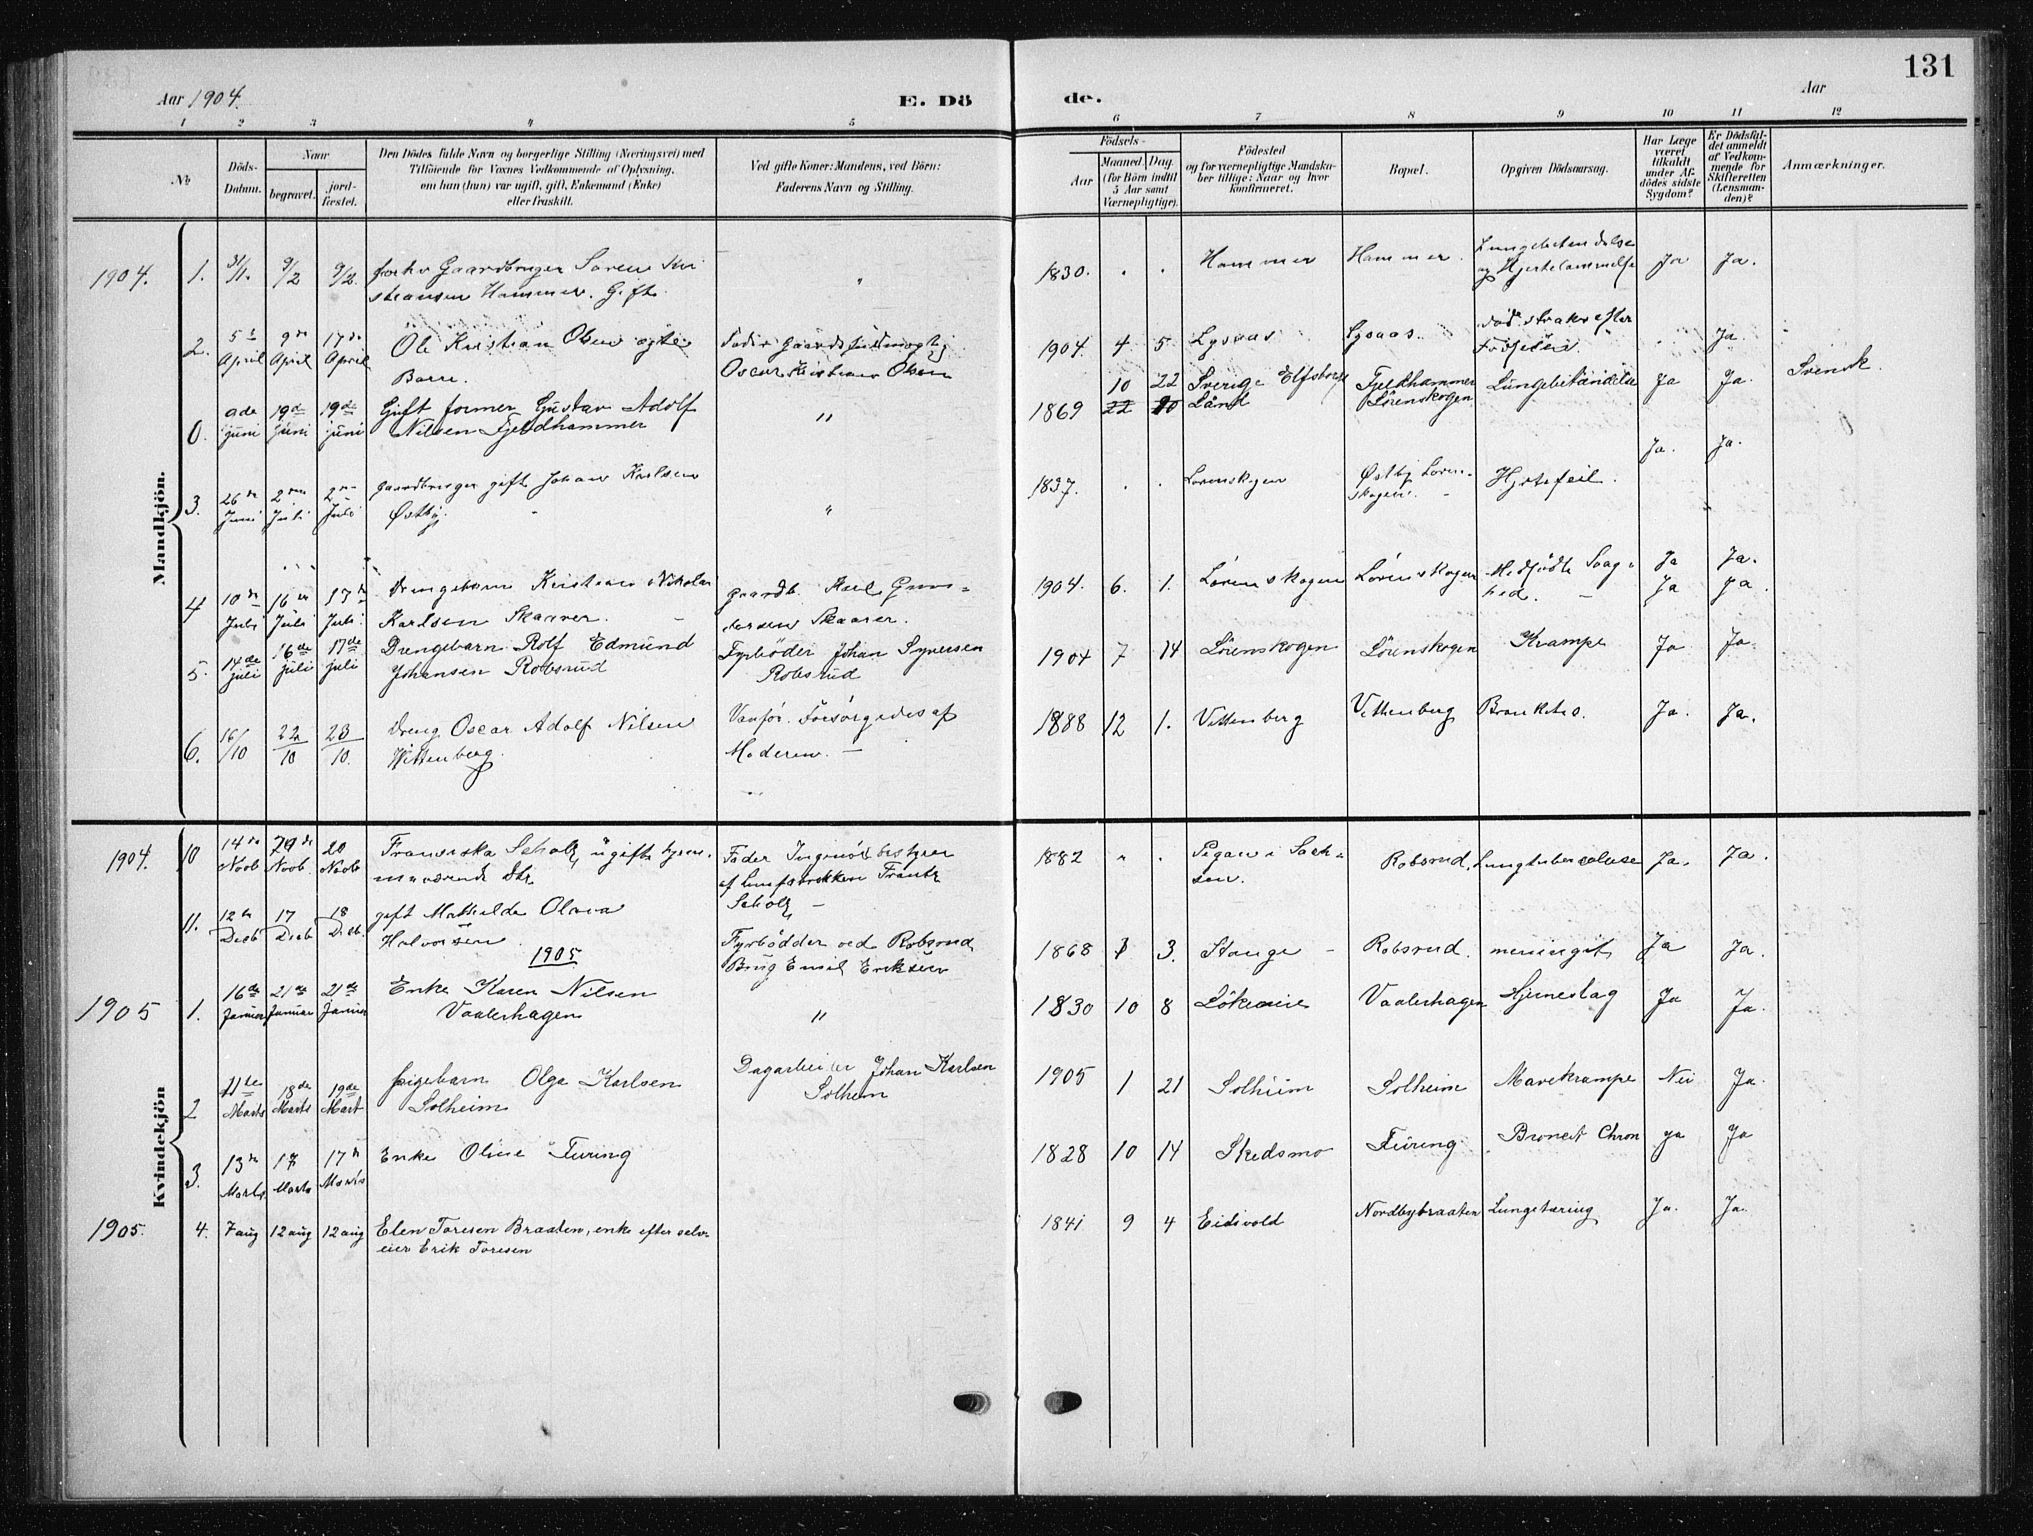 131
Aar 1904.
E. Dö
de.
Aar
1 2 3 4 5
6 7 8 9 10 11 12
No
Döds-
Datum.
Naar
begravet.
jord-
fæstet.
Den Dödes fulde Navn og borgerlige Stilling (Næringsvei) med
Tilföiende for Voxnes Vedkommende af Oplysning,
om han (hun) var ugift, gift, Enkemand (Enke)
eller fraskilt.
Ved gifte Koner: Mandens, ved Börn:
Faderens Navn og Stilling.
Födsels-
Aar
Maaned. Dag.
(for Börn indtil
5 Aar samt
Værnepligtige).
Födested
og for værnepligtige Mandska-
ber tillige: Naar og hvor
konfirmeret.
Bopæl.
Opgiven Dödsaarsag.
Har Læge
været
tilkaldt
under Af-
dödes sidste
Sygdom?
Er Dödsfal-
det anmeldt
af Vedkom-
mende for
Skifteretten
(Lensman-
den)?
Anmærkninger.
Mandkjön.
1904. 1. 31/1. 9/2 9/2. Gaardbruger Søren Kri
stiansen Hammer. Gift. "
1830. . . Hammer Hammer. Lungebetændelse
og Hjertelammelse Ja Ja.
2. 5te April 9de April 17de April Ole Kristian Olsen ægte
Barn.
Oscar Kristian Olsen
1904. 4 5 Lysaas Lysaas. død straks efter
Fødselen. Ja.
0. 9de juni 19de juni 19de juni Gift former Gustav Adolf
Nilsen Fjeldhammer "
1869 10 22 Sverige Elfsborgs
Länd Fjeldhammer
Lörenskogen Lungebetændelse Ja Ja. Svensk.
Ja. Ja.
3. 26de Juni 2den Juli 2den Juli gaardbruger gift Johan Karlsen
Østby. "
1837. . . Lørenskogen Østby Løren-
skogen. Hjertefeil.
Ja Ja.
4 10de Juli 16de Juli 17de Juli Drengebarn Kristian Nikolai
Karlsen Skaarer.
gaardb. Karl Gun-
dersen Skaarer.
1904. 6. 1. Lørenskogen Lørenskogen Medfødte Svag-
hed. Ja Ja.
5. 14de juli 16de juli 17de juli Drengebarn Rolf Edmund
Johansen Robsrud
Fyrböder Johan Syversen
Robsrud
1904 7 14 Lörenskogen Lörenskogen Krampe Ja Ja.
6. 16/10 22/10 23/10. Dreng Oscar Adolf Nilsen
Vittenberg.
Vanfør. Forsørgedes af
Moderen.
1888 12 1. Vittenberg Vittenberg Bronkitis. Ja. Ja.
Kvindekjön
1904. 10 14de Novb 20de Novb. 20 Novb Franciska Scholz, ugift hjem-
meværende Dtr
Fader Ingeniør bestyrer
af Limfabrikken Frantz
Scholz
1882 " . Pegau i Sach-
sen. Robsrud. Lungtuberculose Ja. Ja.
11. 12te Decb 17 Decb 18 Decb. gift Mathilde Olava
Halvorsen.
Fyrbødder ved Robsrud
Brug Emil Eriksen
1868 1 3. Stange Robsrud. meningit Ja Ja.
1905
1905 1. 16de Januar 21de Januar 21de Januar Enke Karen Nilsen
Vaalerhagen "
1830 10 8 Lökeneie Vaalerhagen Hjerneslag Ja Ja.
2 11te Marts 18de Marts 19de Mart pigebarn Olga Karlsen
Solheim
Dagarbeider Johan Karlsen
Solheim
1905 1 21 Solheim Solheim Mavekrampe Nei Ja.
3. 13de Marts 17 Marts 17de Marts Enke Oline Furing
1828 10 14 Skedsmo Furing Bronkit Chron ja Ja
1905. 4. 7 aug 12 aug 12 aug Elen Toresen Braaten, enke efter selv-
eier Erik Toresen
1841 9 4 Eidsvold Nordbybraaten Lungetæring Ja. Ja.